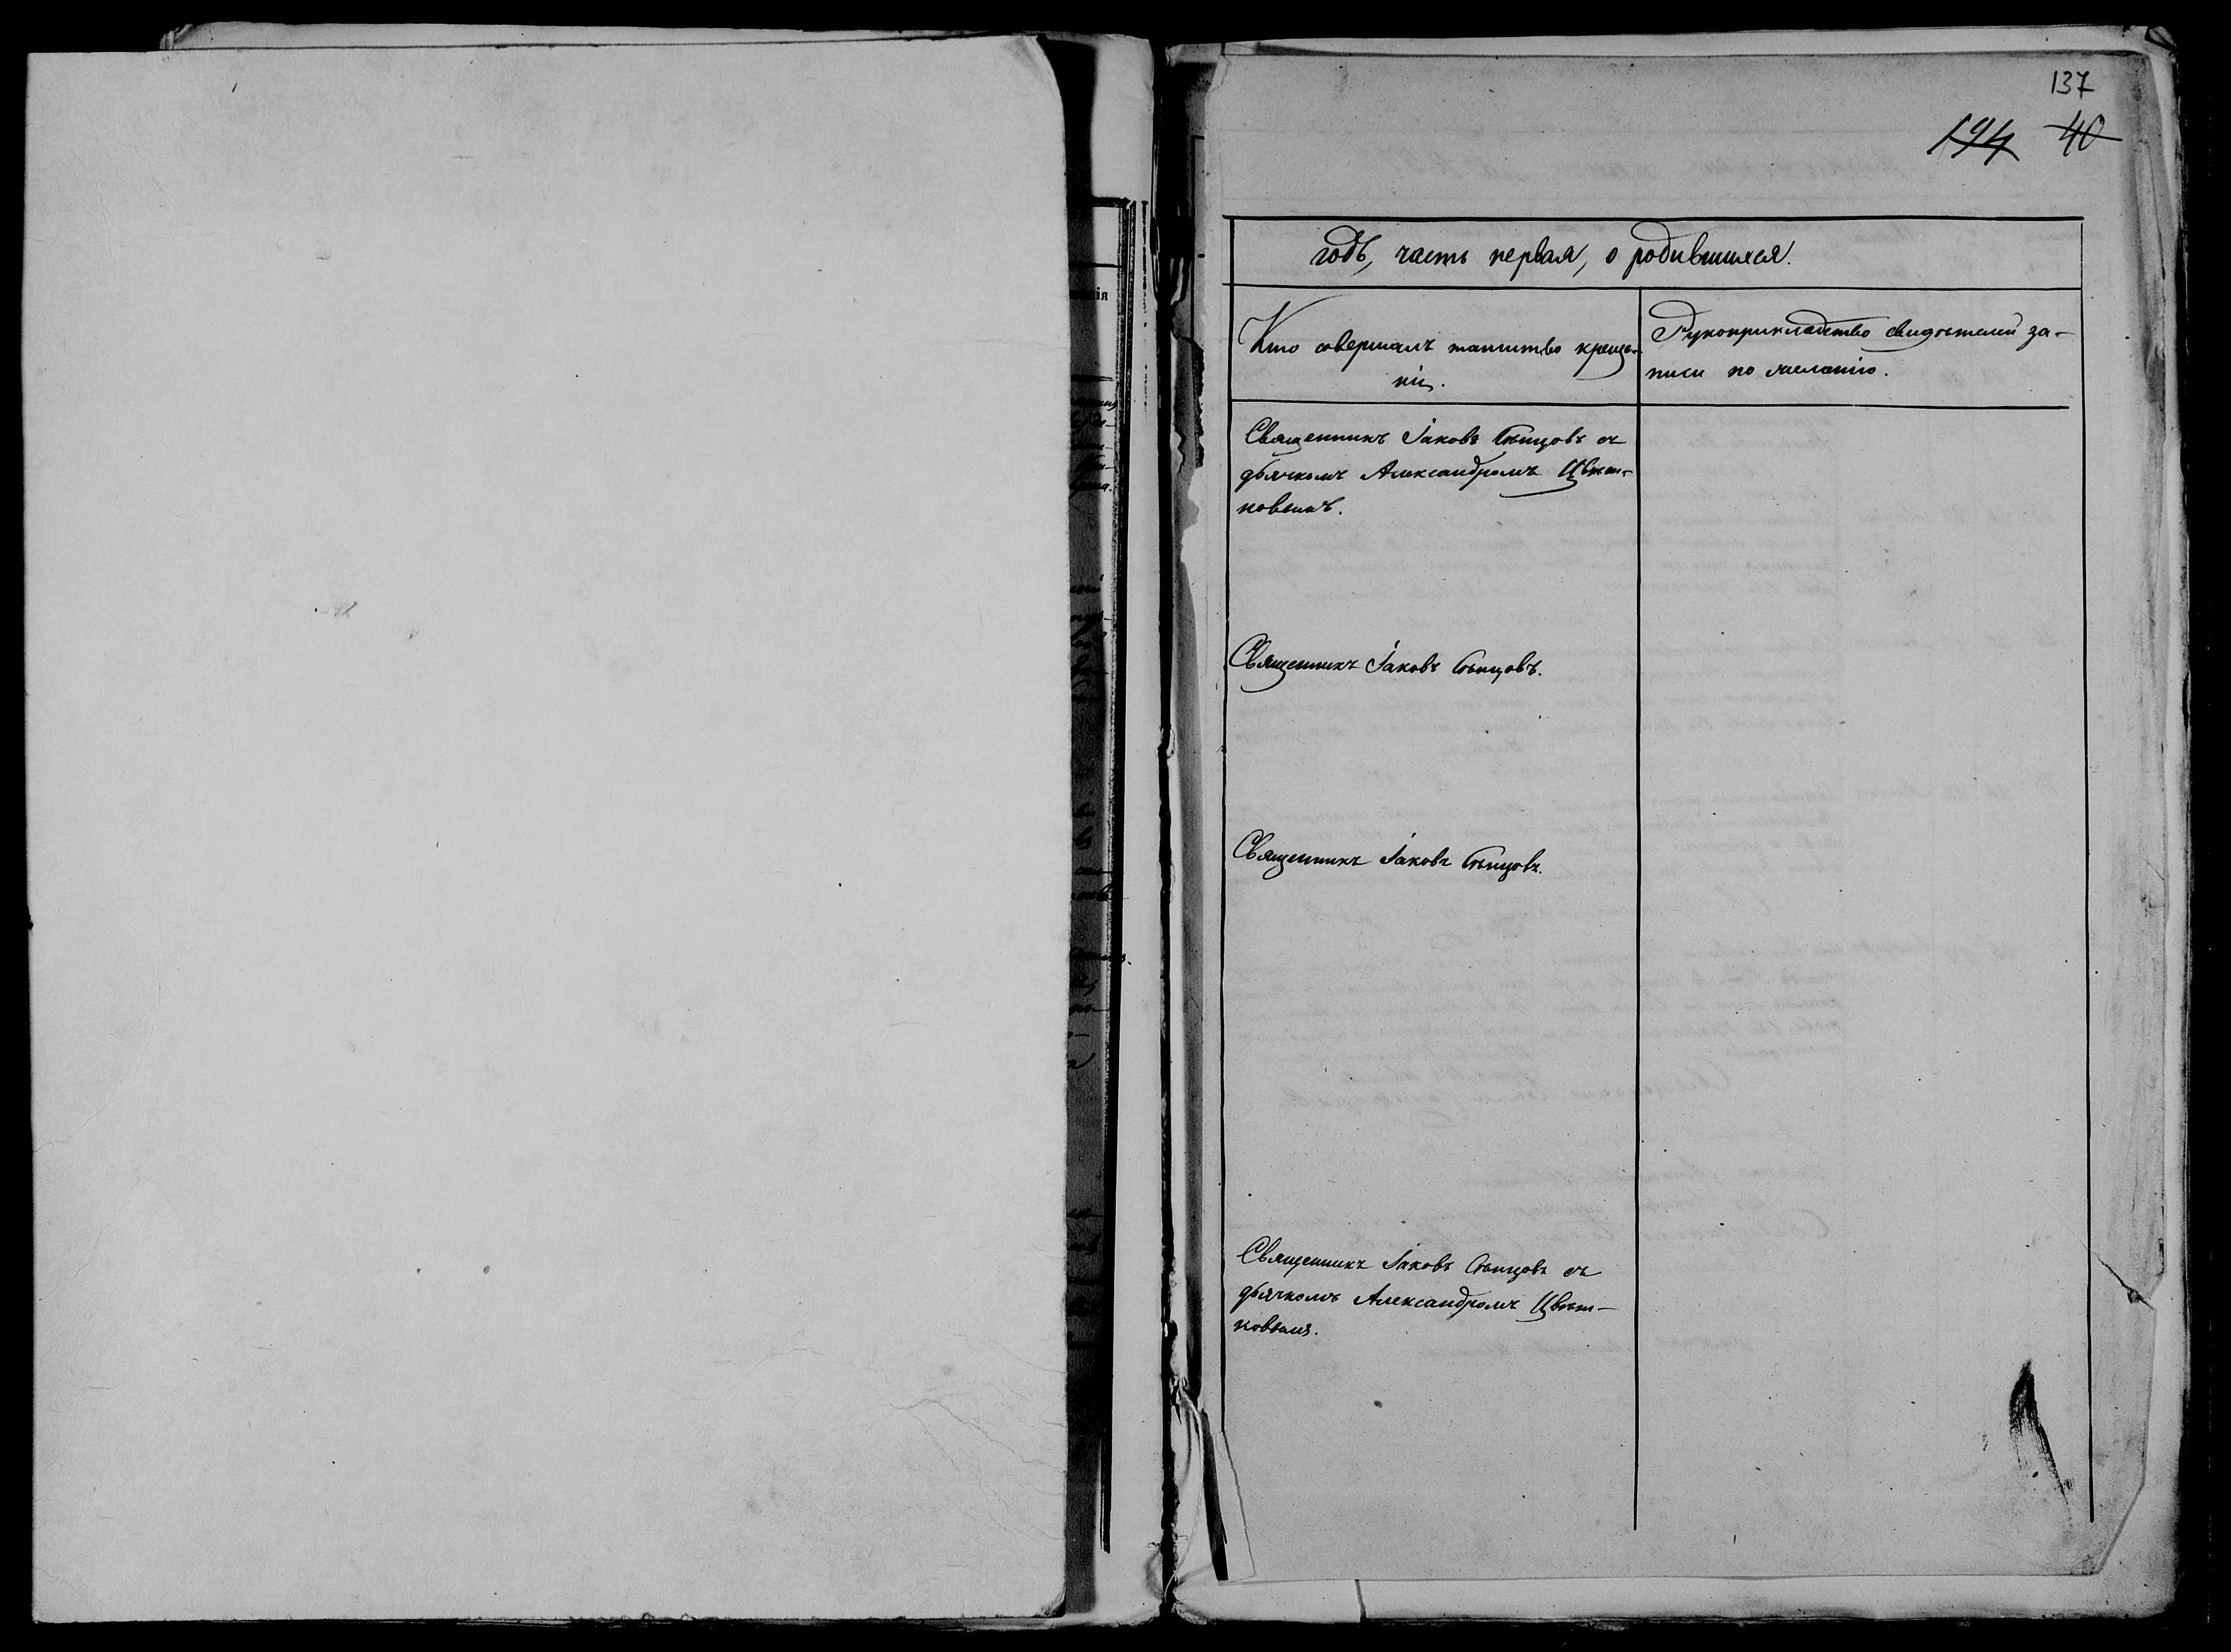 137
194 40
годъ, часть первая, о родившихся.
Кто совершалъ таинство креще-
нія.
Рукоприкладство свидѣтелей за-
писи по желанію.
Священникъ Іаковъ съ
дьячкомъ Александромъ Цвѣт-
ковымъ.
Священникъ Іаковъ
Священникъ Іаковъ
Священникъ Іаковъ съ
дьячкомъ Александромъ Цвѣт-
ковымъ.